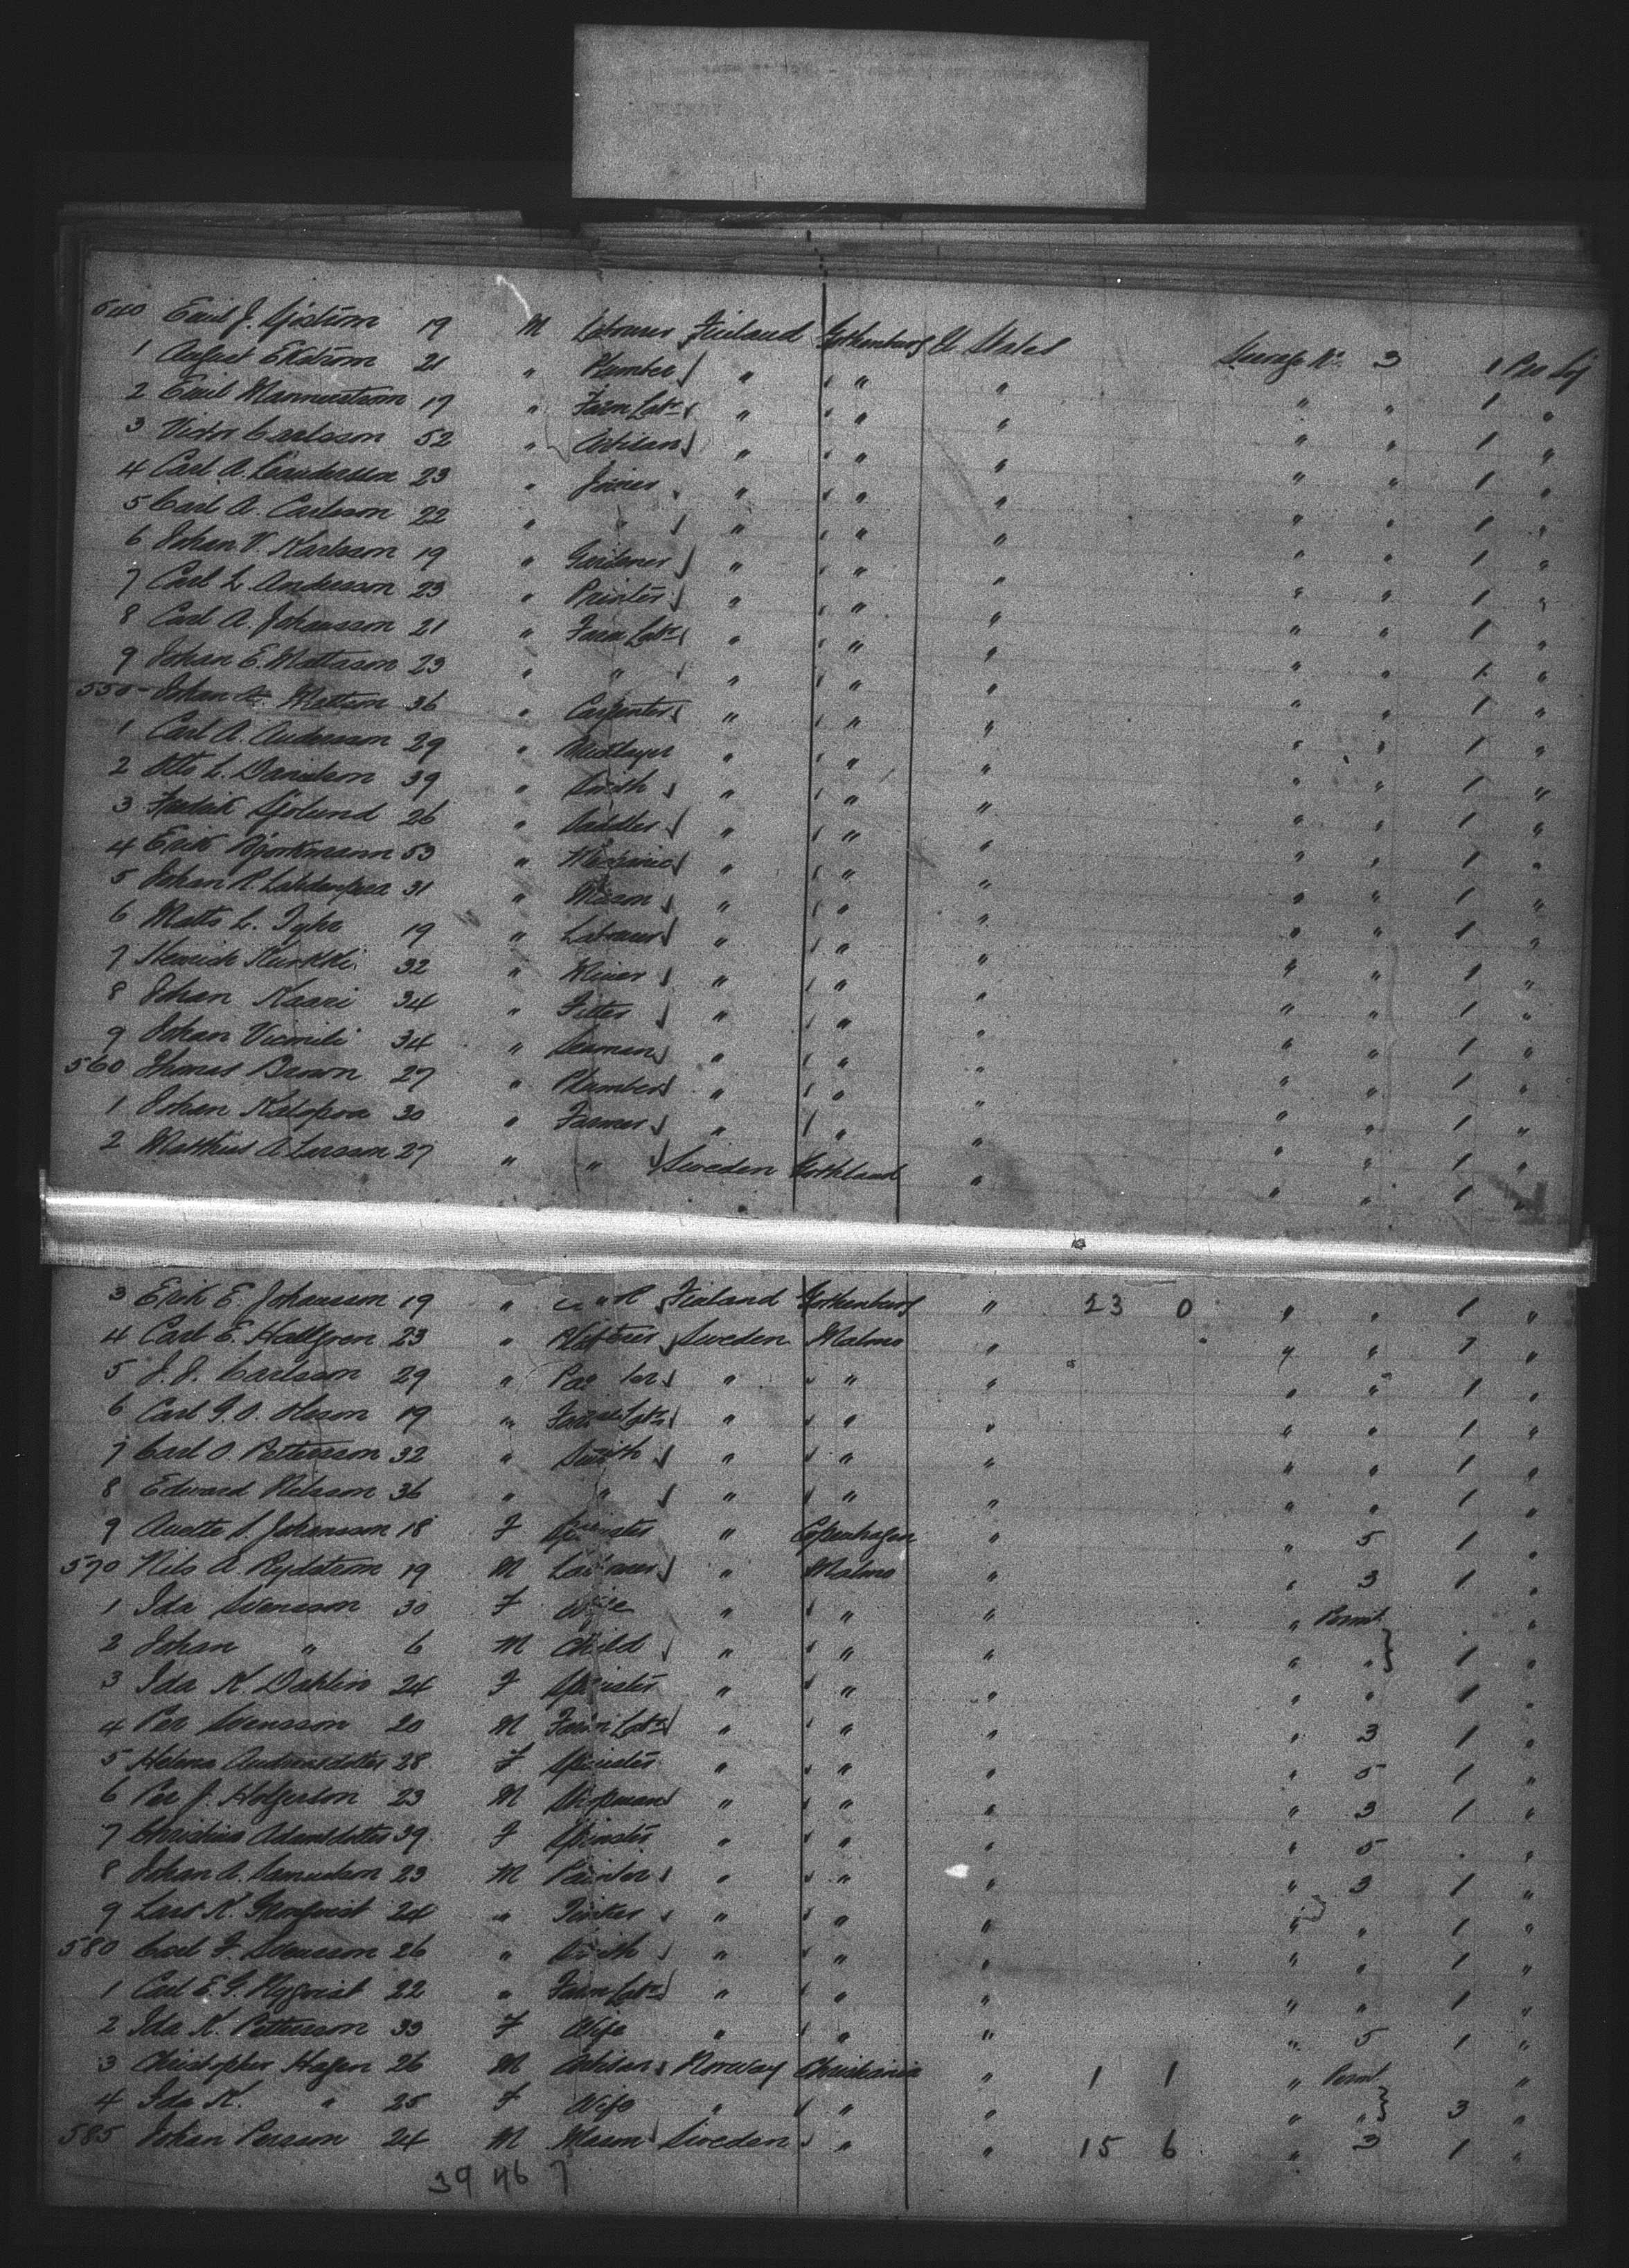 540 Emil J. Sjöström 19 M Labourer Finland Gothenburg U States Steerage No. 3 1 Pce Lug
1 August Ekström 21 " Plumber " " " " " 1 "
2 Emil Mannerström 17 " Farm Labr " " " " " 1 "
3 Victor Carlsson 52 " Artisan " " " " " 1 "
4 Carl A. 23 " Joiner " " " " " 1 "
5 Carl A. Carlsson 22 " " " " " " " 1 "
6 Johan V. Karlsson 19 " Gardener " " " " " 1 "
7 Carl L. Andersson 23 " Printer " " " " " 1 "
8 Carl A. Johansson 21 " Farm Labr " " " " " 1 "
9 Johan E. Mattsson 23 " " " " " " " 1 "
550 Johan A. Mattson 36 " Carpenter " " " " " 1 "
1 Carl A. Andersson 29 " " " " " " 1 "
2 Otto L. Danielson 39 " Smith " " " " " 1 "
3 Fredrik Sjolund 26 " Saddler " " " " " 1 "
4 Erik Bjorkmann 53 " Mechanic " " " " " 1 "
5 Johan R. 31 " Mason " " " " " 1 "
6 Matts L. Tyko 19 " Labourer " " " " " 1 "
7 Henrich Kurkki 32 " Miner " " " " " 1 "
8 Johan Kaari 34 " Fitter " " " " " 1 "
9 Johan 34 " Seaman " " " " " 1 "
560 Thomas Brown 27 " Plumber " " " " " 1 "
1 Johan Katopora 30 " Farmer " " " " " 1 "
2 Matthias A. Larsson 27 " " Sweden Gothland " " " 1 "
3 Erik E. Johansson 19 " " Finland Gothenburg " 23 0 " " 1 "
4 Carl E. Hallgren 23 " Sweden Malmo " " " 1 "
5 J. J. Carlsson 29 " " " " " " 1 "
6 Carl G. O. Olsson 19 " Farm Labr " " " " " 1 "
7 Carl O. Petterson 32 " Smith " " " " " 1 "
8 Edward Nelsson 36 " " " " " " " 1 "
9 Anette S. Johansson 18 F Spinster " Copenhagen " " 5 1 "
570 Nils A. Rydstrom 19 M Labourer " Malmo " " 3 1 "
1 Ida Svensson 30 F Wife " " " " Permt "
2 Johan " 6 M Child " " " " " 1 "
3 Ida K. Dahlin 24 F Spinster " " " " " 1 "
4 Per Svensson 20 M Farm Labr " " " " 3 1 "
5 Helena Andreasdotter 28 F Spinster " " " " 5 1 "
6 Per J. Holgerson 23 M Shopman " " " " 3 1 "
7 Christina Adamsdotter 39 F Spinster " " " " 5 "
8 Johan A. Samuelson 23 M Painter " " " " 3 1 "
9 Lars K. 24 " Tinker " " " " " 1 "
580 Carl F. Svensson 26 " Smith " " " " " 1 "
1 Carl E. G. 22 " Farm Labr " " " " " 1 "
2 Ida K. Petterson 33 F Wife " " " " 5 1 "
3 Christopher Hagen 26 M Artisan Norway Christiania " 1 1 " Permt "
4 Ida K. " 25 F Wife " " " " " 3 "
585 Johan Persson 24 M Mason Sweden " " 15 6 " 3 1 "
39 46 7